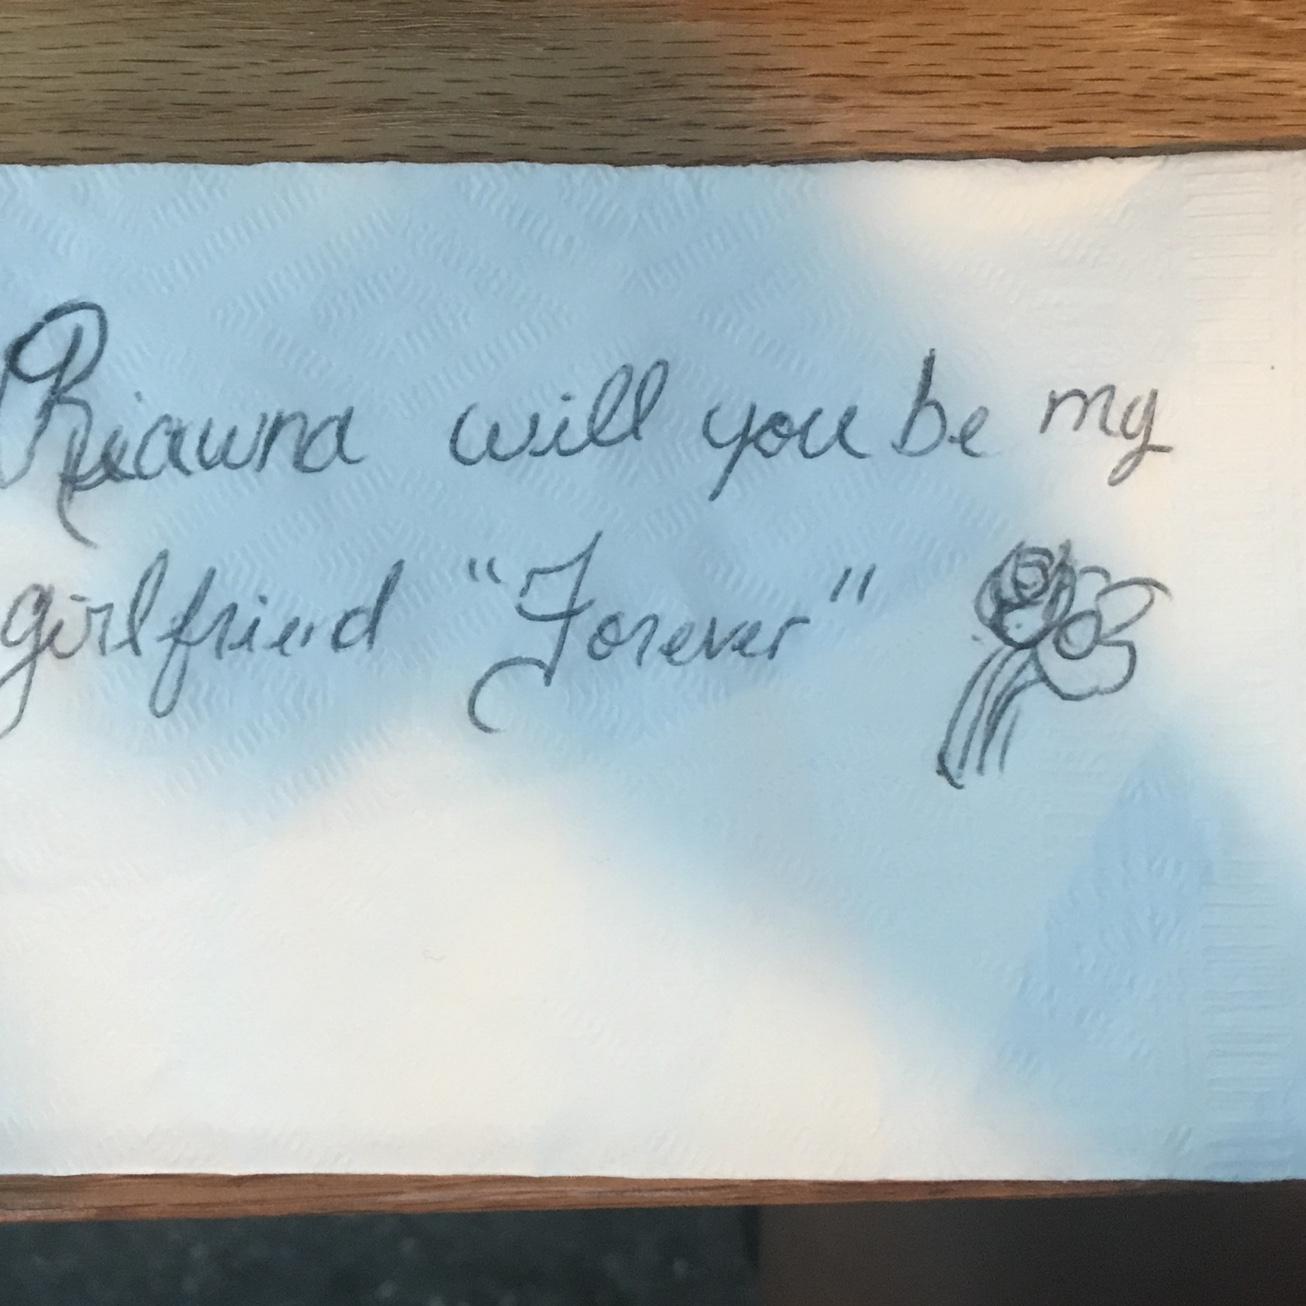 Riawna will you be my
girlfriend "Forever"